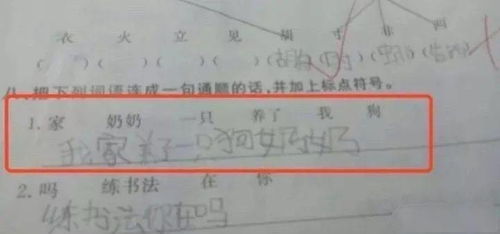 衣 火 立 见 胡 寸 非 四
( ) ( ) ( ) ( ) (胡 ) ( ) ( )
八、把下列词语连成一句通顺的话,并加上标点符号。
1.家 奶奶 一只 养了 我 狗
我家养了一只狗奶奶
2.吗 练书法 在 你
练书法你在吗